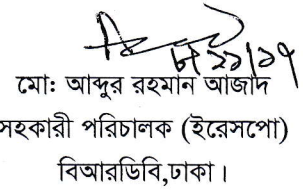 মো: আব্দুর রহমান আজাদ
সহকারী পরিচালক (ইরেসপো)
বিআরডিবি,ঢাকা।